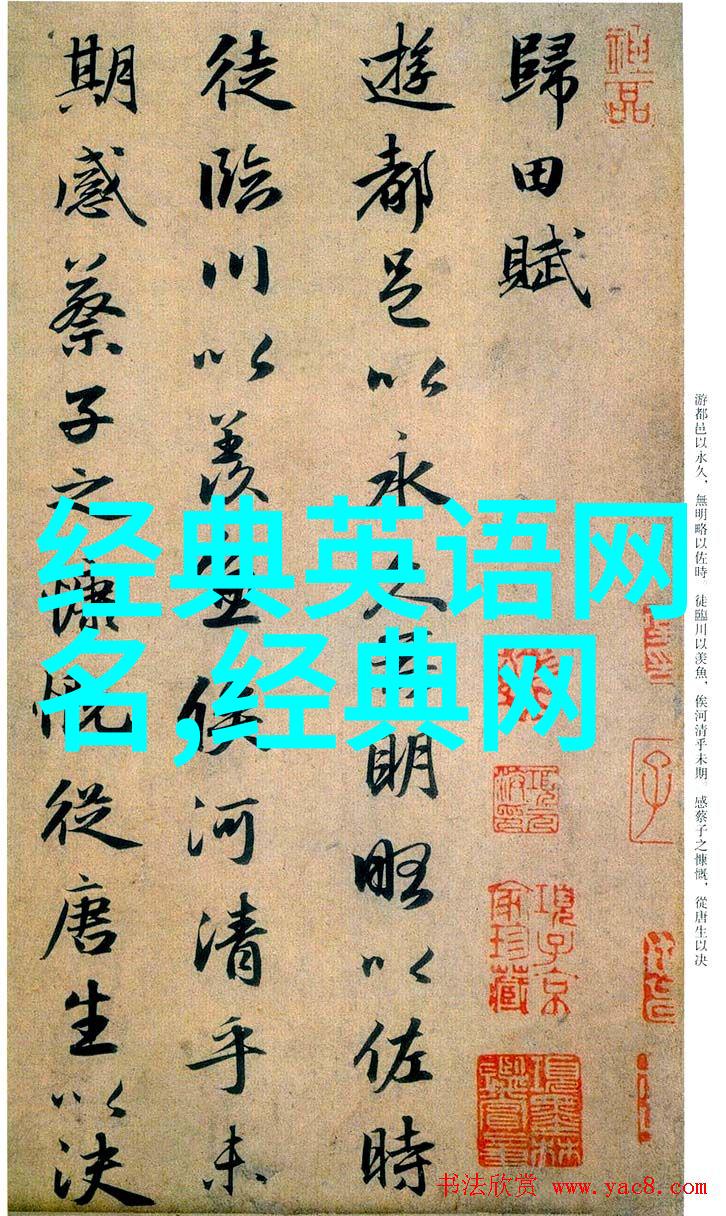 歸田賦
遊都邑以永久無明略以佐時
徒臨川以羨魚俟河清乎未
期感蔡子之慷慨從唐生以決
经典英语网
名,经典网
游都邑以永久，無明略以佐時　徒臨川以羨魚，俟河清乎未期。感蔡子之慷慨，從唐生以决
項子京
家珍藏
項墨林
鑑賞章
书法欣赏 www.yac8.com